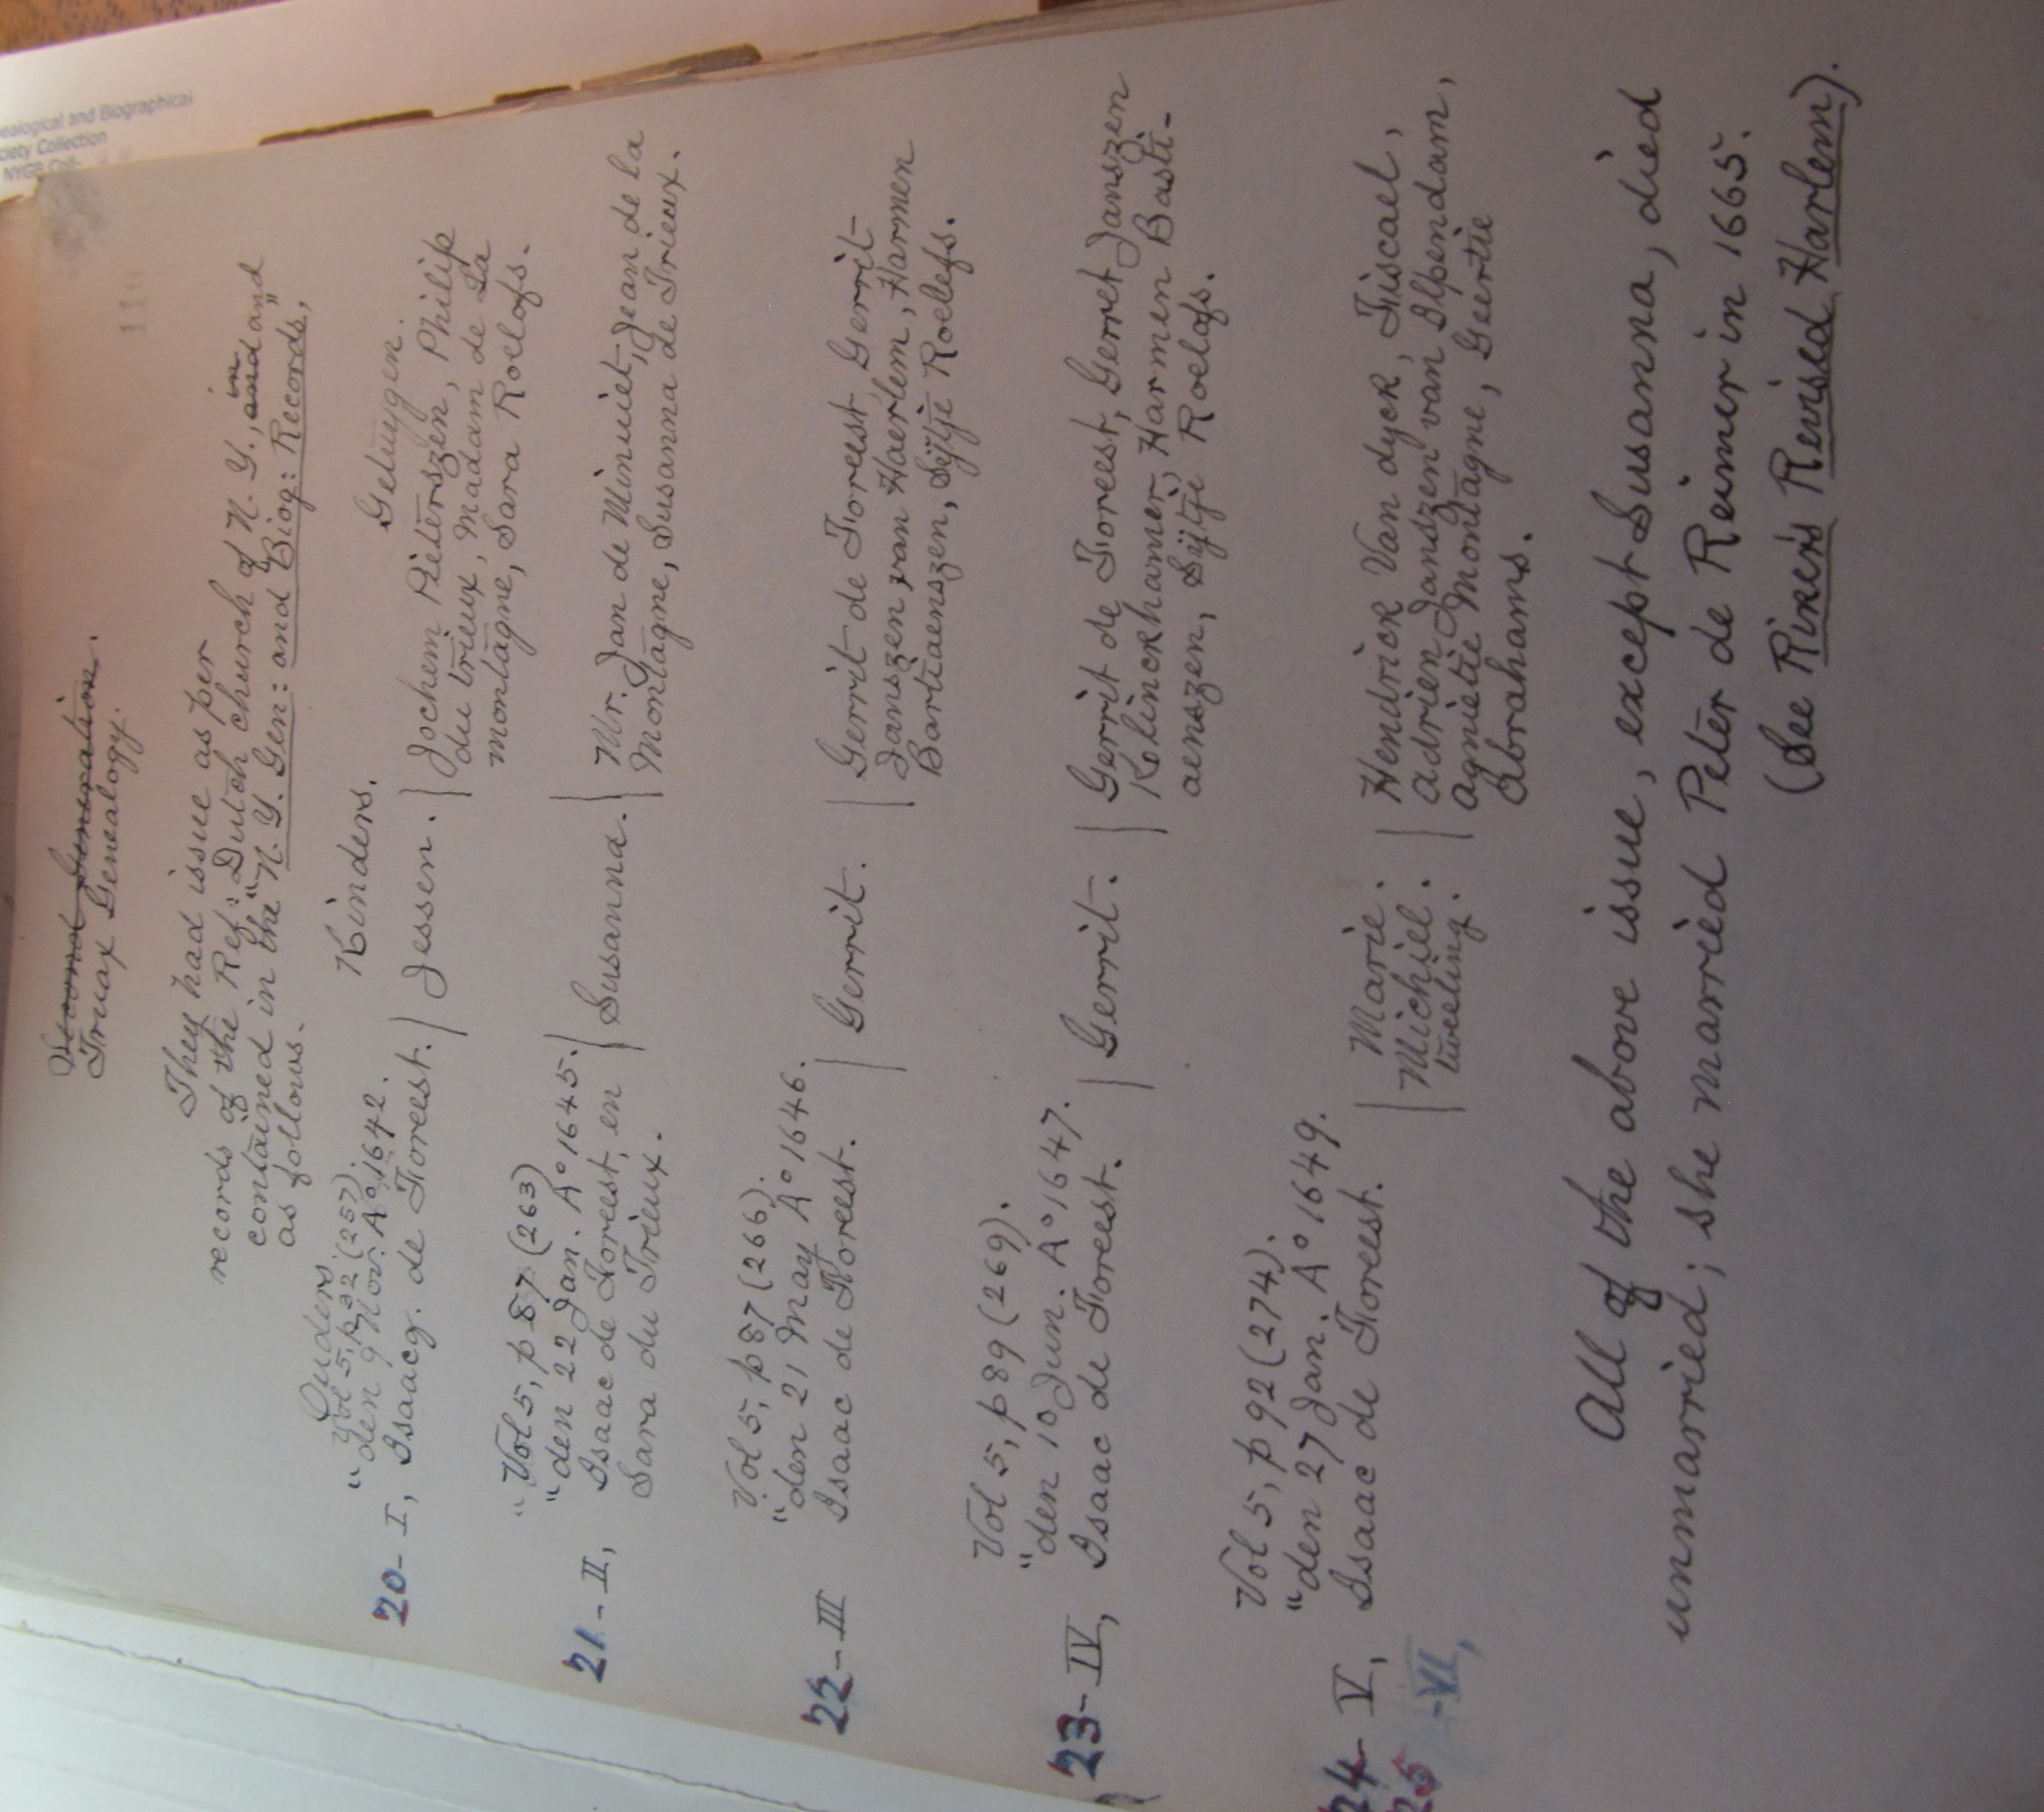 ealogical and Biographical
ciety Collection
NYGB Coll-
110
Second Generation.
Truax Genealogy.
They had issue as per
records of the Ref: Dutch church of N. Y., and in and
contained in the "N. Y. Gen: and Biog: Records,"
as follows.
Ouders. Kinders. Getuygen.
Vol 5, p 32 (257).
"den 9 Nov. A° 1642.
20- I, Isaacq. de Foreest. | Jessen. | Jochem Pieterszen, Philip
du trieux, Madam de La
montagne, Sara Roelofs.
"Vol 5, p 87 (263)
"den 22 Jan. A° 1645.
21- II, Isaac de Foreest, en | Susanna. | Mr. Jan de Miniuet, Jean de la
Sara du Trieux. Montagne, Susanna de Trieux.
Vol 5, p 87 (266).
"den 21 May A° 1646.
22- III Isaac de Foreest. | Gerrit. | Gerrit de Foreest, Gerrit
Janszen van Haerlem, Harmen
Bartiaenszen, Sijtje Roelefs.
Vol 5, p 89 (269).
"den 10 Jun. A° 1647.
23- IV, Isaac de Foreest. | Gerrit. | Gerrit de Foreest, Gerret Janszen
Kolinckhamer, Harmen Basti-
aenszen, Sijtje Roelofs.
Vol 5, p 92 (274).
"den 27 Jan. A° 1649.
24- V, Isaac de Foreest. | Marie. | Hendrick Van dyck, Fiscael,
25 -VI, Michiel. Adrien Janszen van Ilpendam,
tweeling. Agnietie Montagne, Geertie
Abrahams.
All of the above issue, except Susanna, died
unmarried; she married Peter de Reimer in 1665.
(See Riker's Revised Harlem).